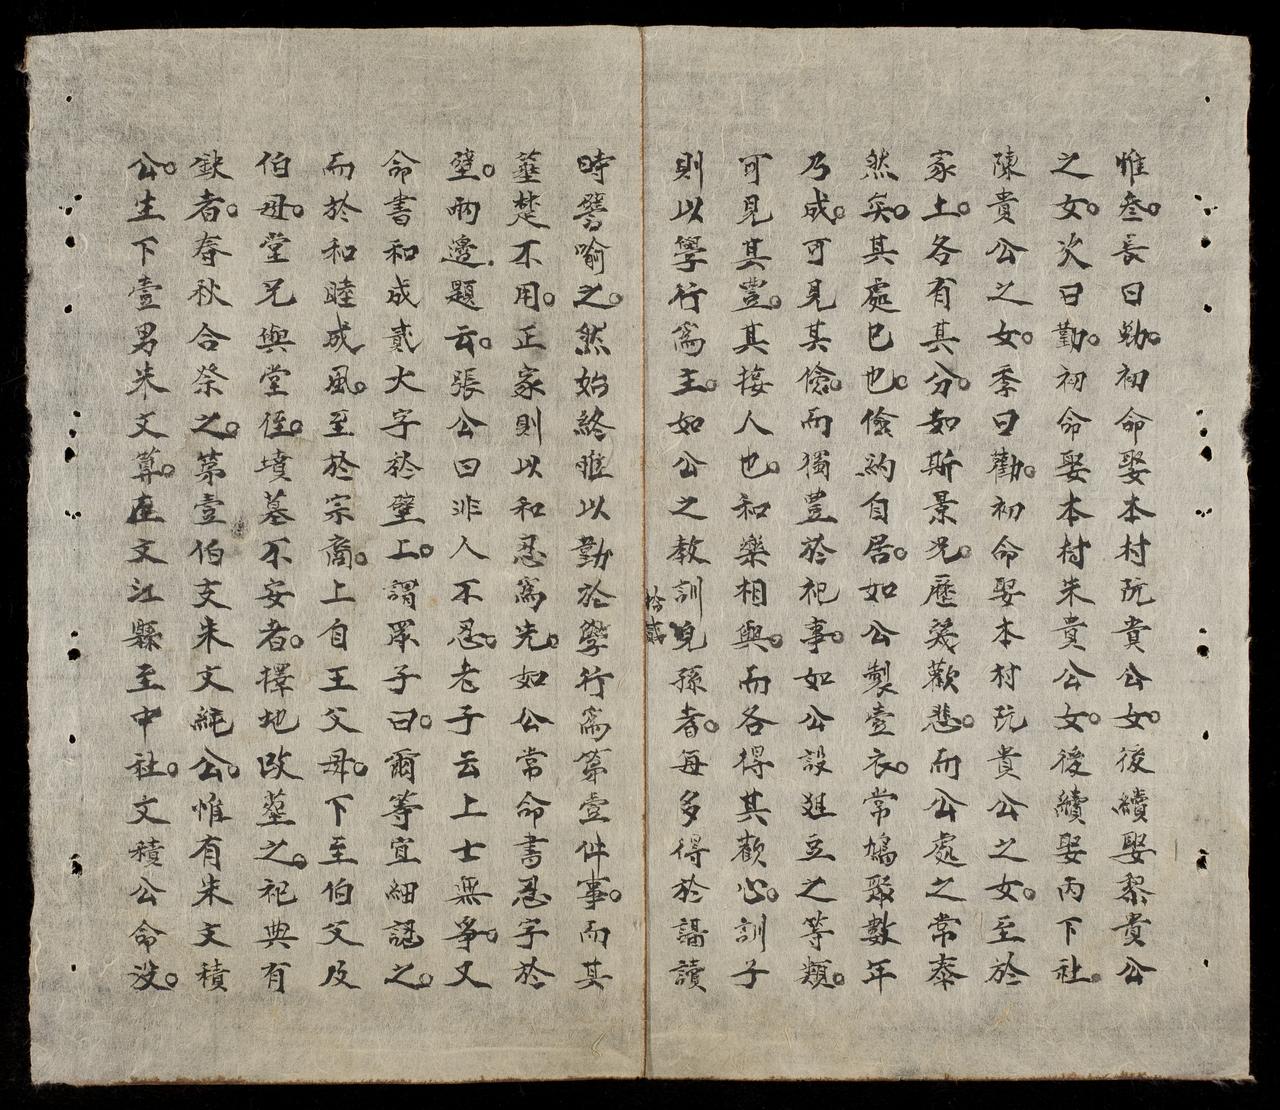 惟叁。長曰勑。初命娶本村阮貴公女。後續娶黎貴公
之女。次曰勤。初命娶本村朱貴公女。後續娶丙下社。
陳貴公之女。季曰勸。初命娶本村阮貴公之女。至於
家土。各有其分。如斯景况。歷幾歡悲。而公處之常泰
然矣。其處己也。儉約自居。如公製壹衣。常鳩聚數年
乃成。可見其儉。而獨豊於祀事。如公設俎豆之等類。
可見其豊。其接人也。和樂相與。而各得其歡心。訓子
則以學行爲主。如公之教訓兒孫者。每多得於講讀
拾貳
時譬喻之。然始終惟以勤於學行爲第壹件事。而其
箠楚不用。正家則以和忍爲先。如公常命書忍字於
壁。兩邊題云。張公曰非人不忍。老子云上士無爭。又
命書和成貳大字於壁上。謂眾子曰。爾等宜細認之。
而於和睦成風。至於宗商。上自王父母。下至伯父及
伯母。堂兄與堂侄。墳墓不安者。擇地改塟之。祀典有
缺者。春秋合祭之。第壹伯支朱文純公。惟有朱文積
公。生下壹男朱文算。在文江縣至中社。文積公命没。